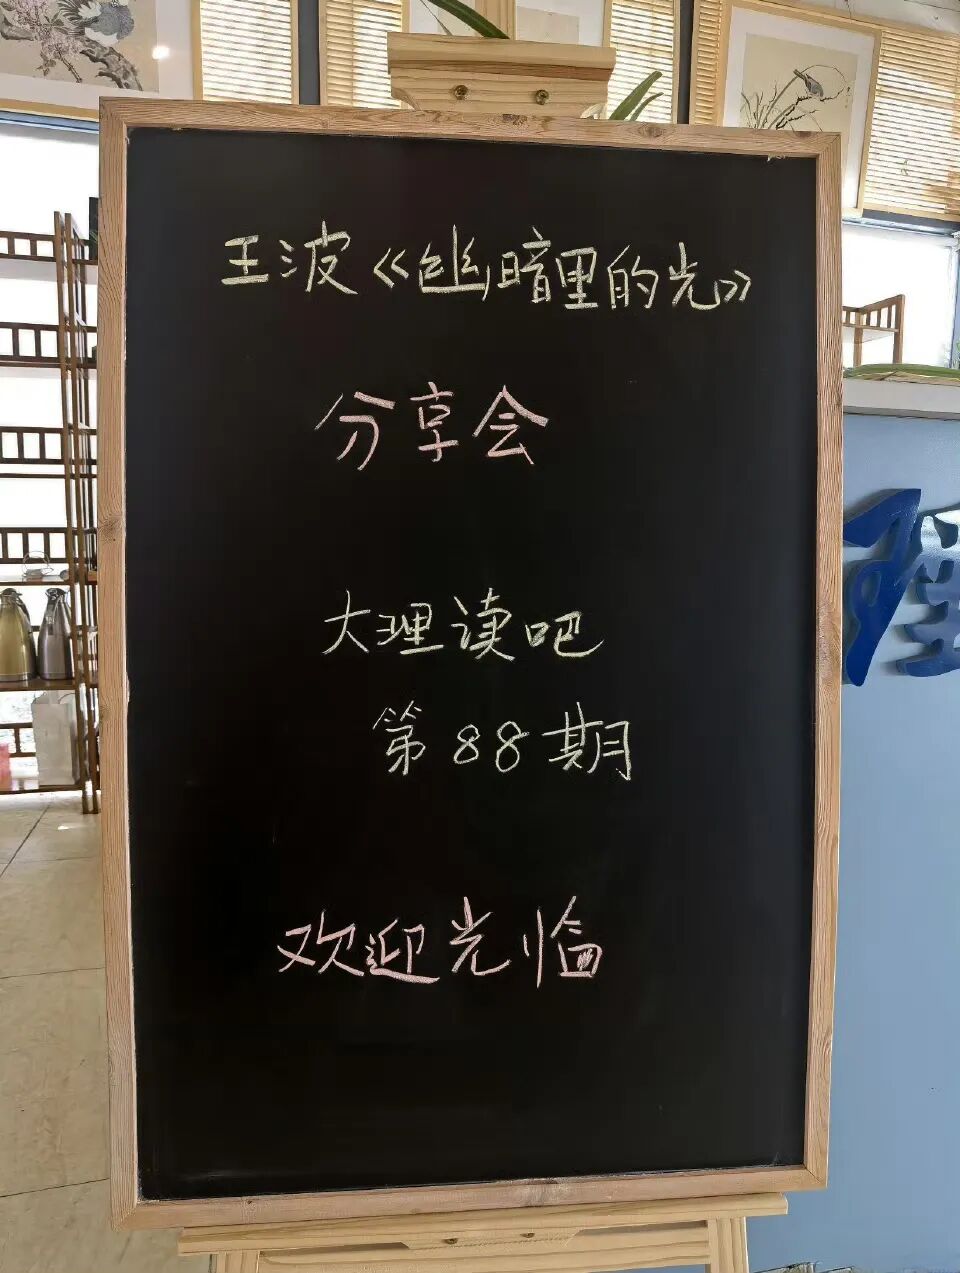 王波《幽暗里的光》
分享会
大理读吧
第88期
欢迎光临